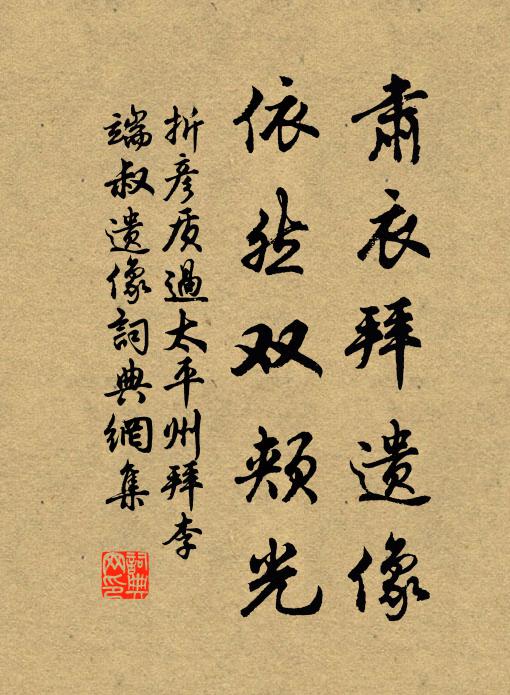 肅衣拜遺像
依然双頰光
折彥质過太平州拜李
端叔遺像詞典網集
詞典
网印